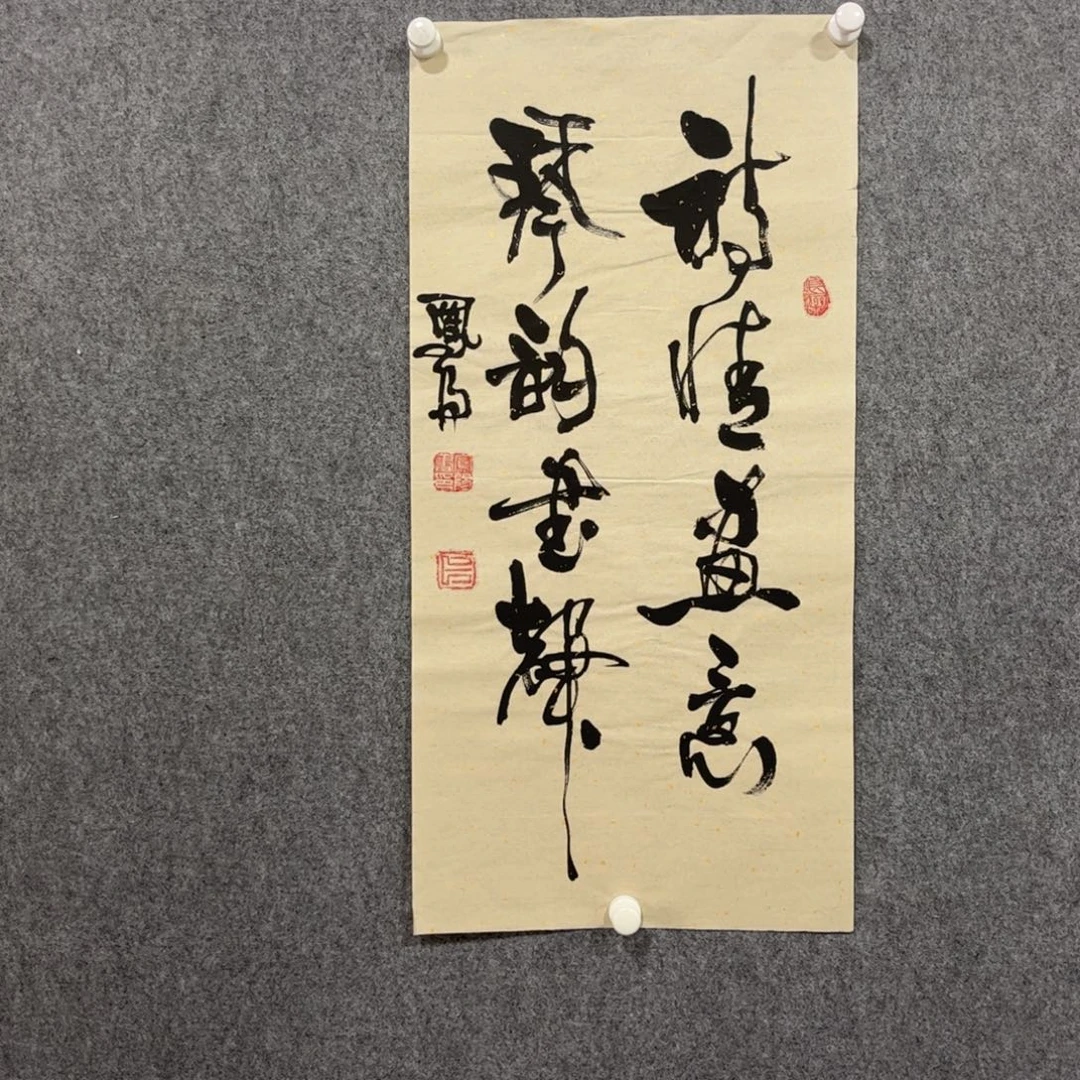 詩情畫意
琴韵書聲
鳳舟